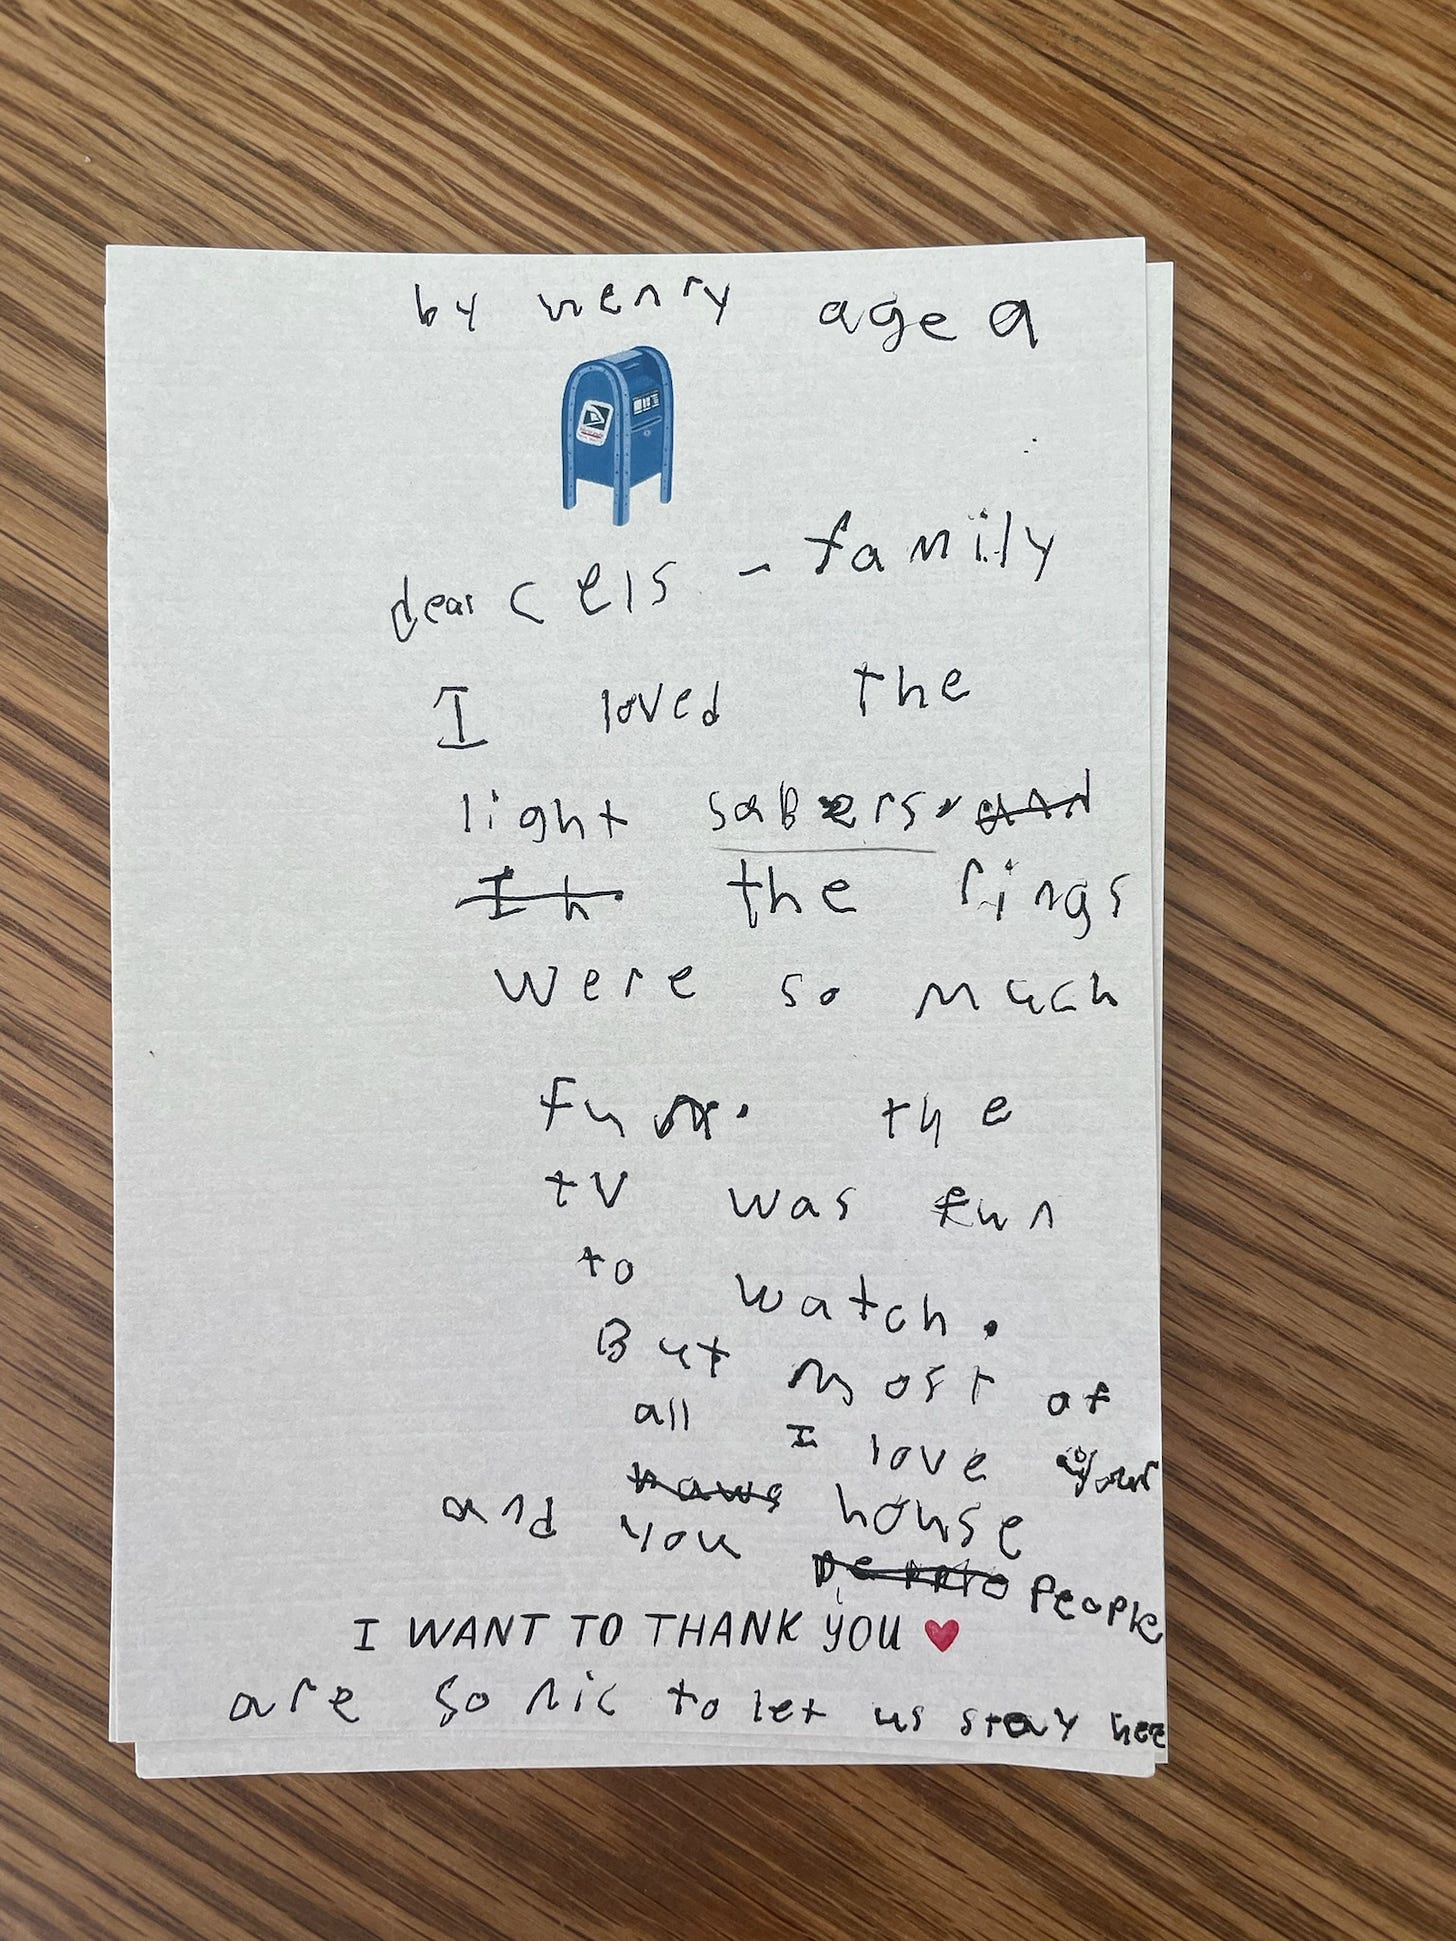 by Henry age 9
dear Cels - family
I loved the
light saBers. and
I h. the rings
were so much
fun. the
tv was fun
to watch.
But most of
all I love your
haws house
and you people
I WANT TO THANK YOU ❤
are so nic to let us stay here